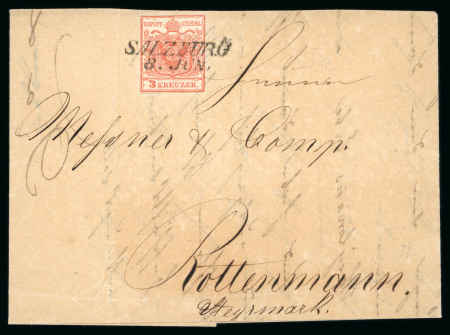 KKPOST-STEMPEL
SALZBURG
8. JUN.
3 KREUZER.
Messner & Comp.
Rottenmann.
Steyrmark.